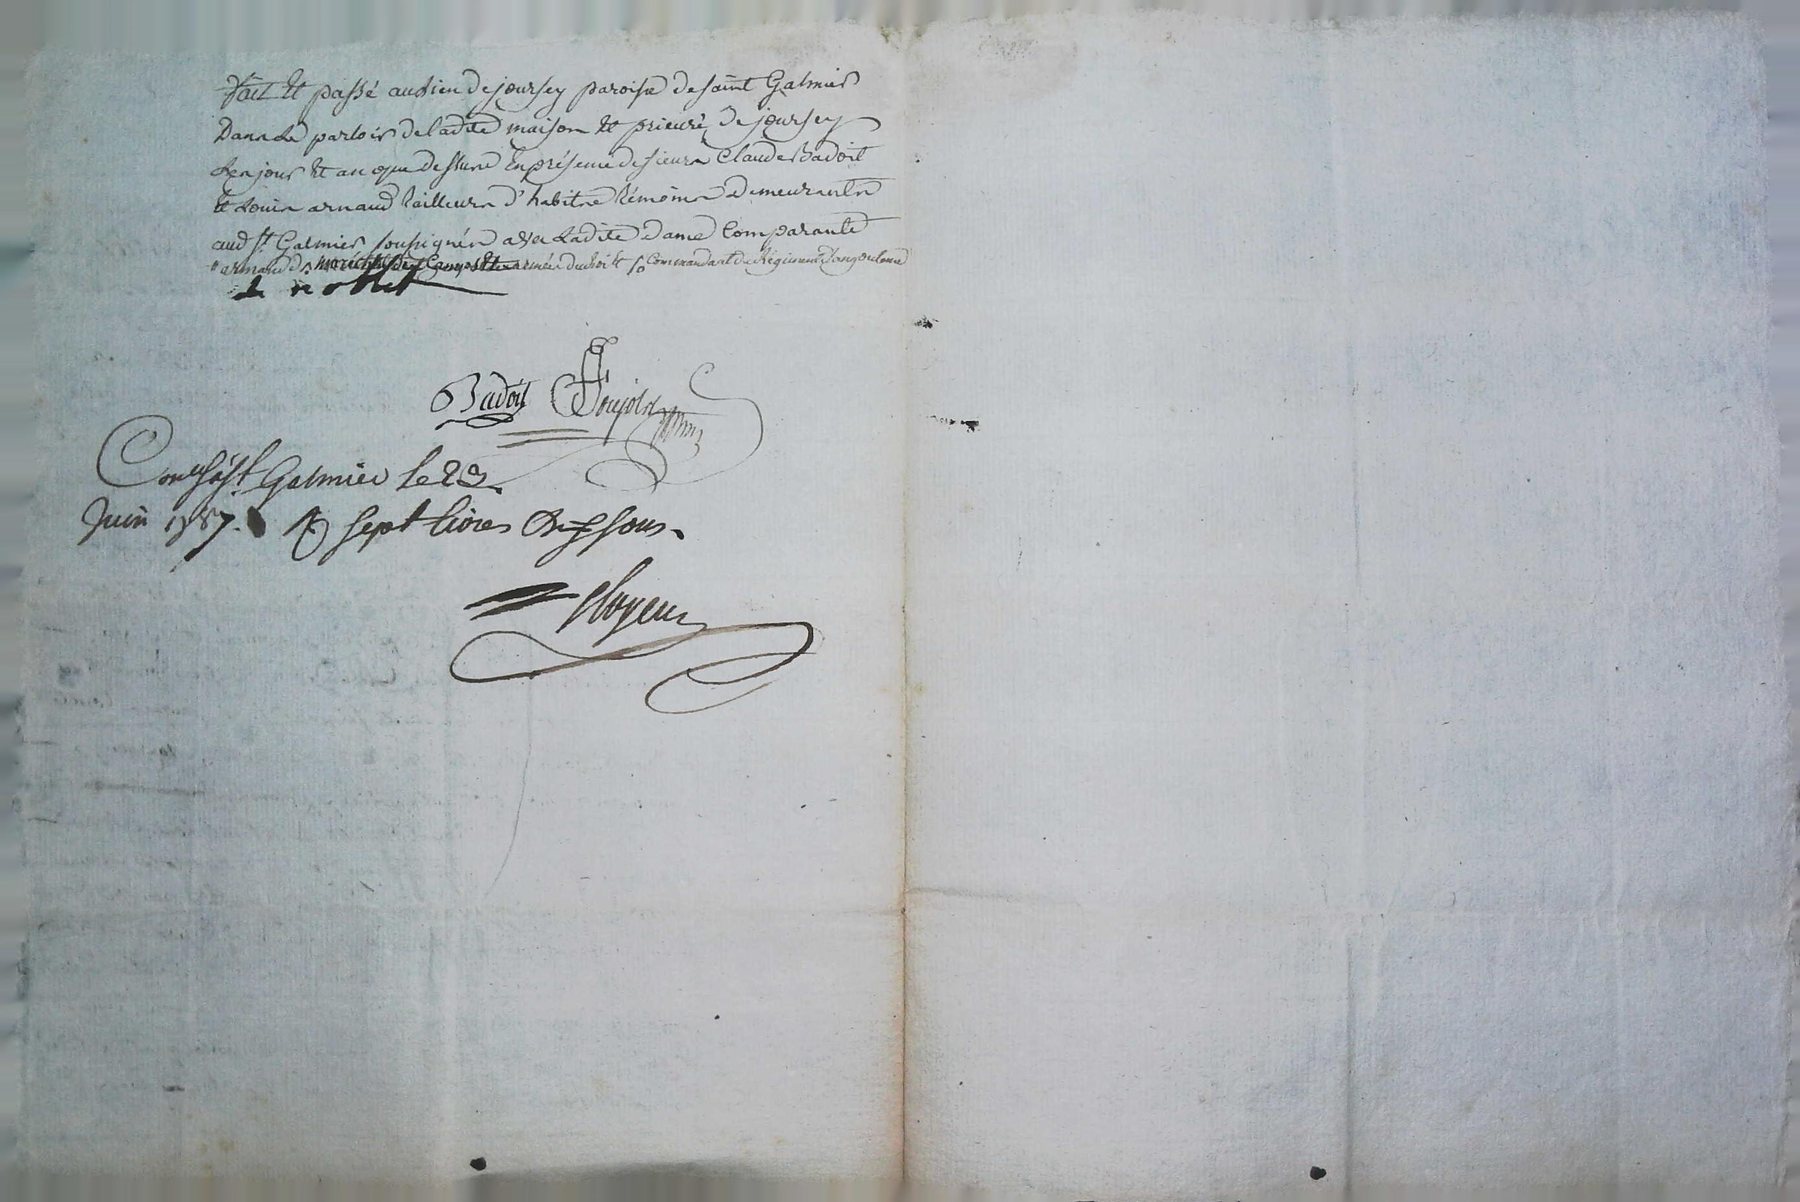 Fait Et passé au Lieu de joursey paroisse de saint Galmier
Dans Le parloir de Ladite maison Et prieuré de joursey
Les jour Et an que dessus En présence de sieurs Claude Badoit
Et Louis arnaud tailleurs d'habits témoins demeurants
aud St Galmier soussignés avec Ladite dame Comparante
arnaud du Roi & Commandant du Régiment D'angouleme
Badoit
Conlé à St. Galmier le 23.
Juin 1787. R sept livres dix sous.